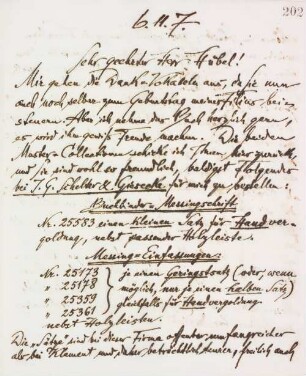 202
6.11.7.
Sehr geehrter Herr Hübel!
Mir gehen die Dank-Vokabeln aus, da sie nun
auch noch selber zum Geburtstag meiner Frau bei-
steuern. Aber ich nehme das Buch herzlich gern,
es wird ihr gewiß Freude machen. Die beiden
Muster-Collectionen schicke ich Ihnen hier zurück,
und sie sind wohl so freundlich, baldigst Folgendes
bei J. G. Schelter & Giesecke für mich zu bestellen:
Buchbinder-Messingschrift
Nr. 25583 einen kleinen Satz für Handver-
goldung, nebst passender Holzleiste.
Messing-Einfassungen:
Nr. 25173 je einen Geringstsatz (oder, wenn
" 25178 möglich, nur je einen halben Satz)
" 25359 gleichfalls für Handvergoldung
" 25361
nebst Holzleisten.
Die Sätze sind bei dieser Firma offenbar umfangreicher
als bei Klement und daher beträchtlich teurer, freilich auch